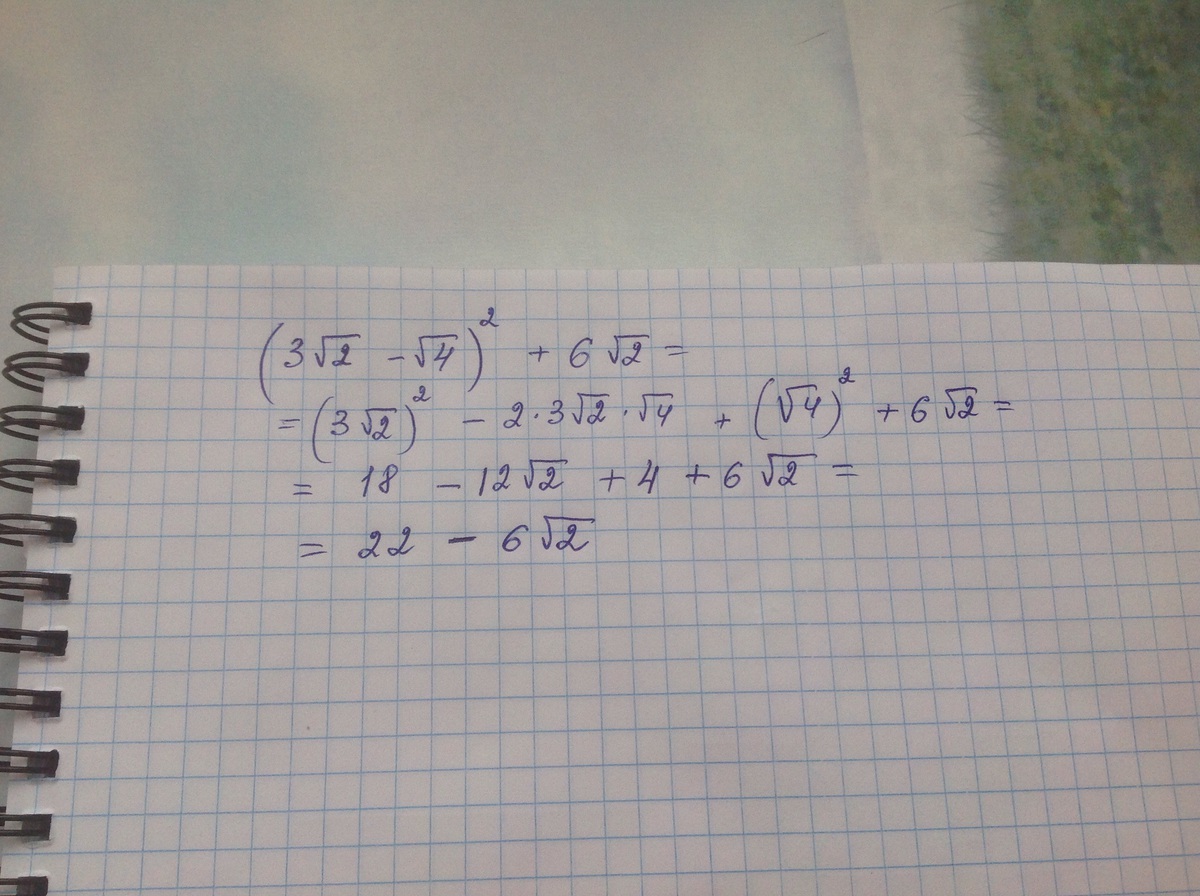 (3√2 - √4)² + 6√2 =
= (3√2)² - 2·3√2·√4 + (√4)² + 6√2 =
= 18 - 12√2 + 4 + 6√2 =
= 22 - 6√2